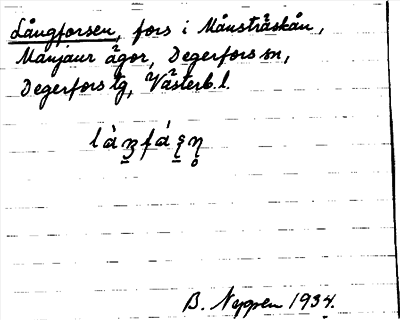 Långforsen, fors i Månsträskån,
Manjaur ägor, Degerfors sn,
Degerfors tg, Västerb. l.
B. Nygren 1934.